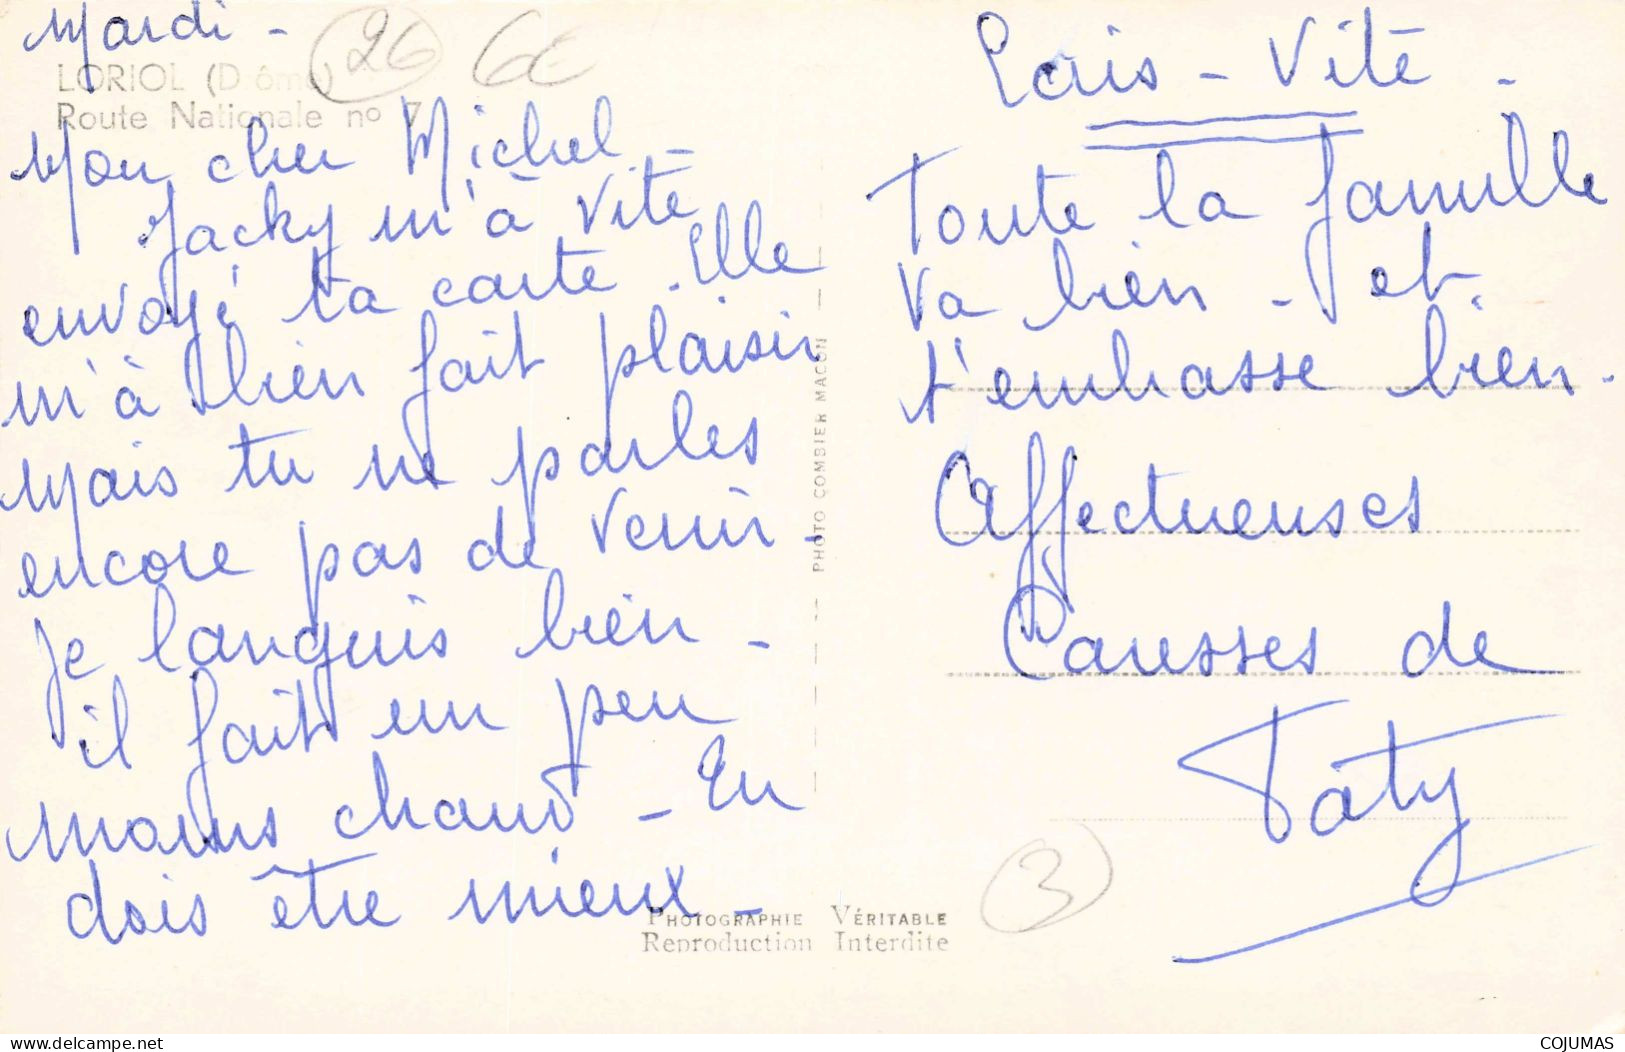 Mardi -
26
6€
LORIOL (Drôme)
Route Nationale nº 7
Mon cher Michel -
Jacky m'à vite
envoyé ta carte . Elle
m'à bien fait plaisir
Mais tu ne parles
encore pas de venir -
Je languis bien -
il fait un peu
moins chaud - Tu
dois être mieux -
PHOTO COMBIER MACON
PHOTOGRAPHIE VÉRITABLE
Reproduction Interdite
Ecris - Vite -
Toute la famille
va bien - et
t'embrasse bien -
Affectueuses
Caresses de
Taty
3
delcampe.net
COJUMAS